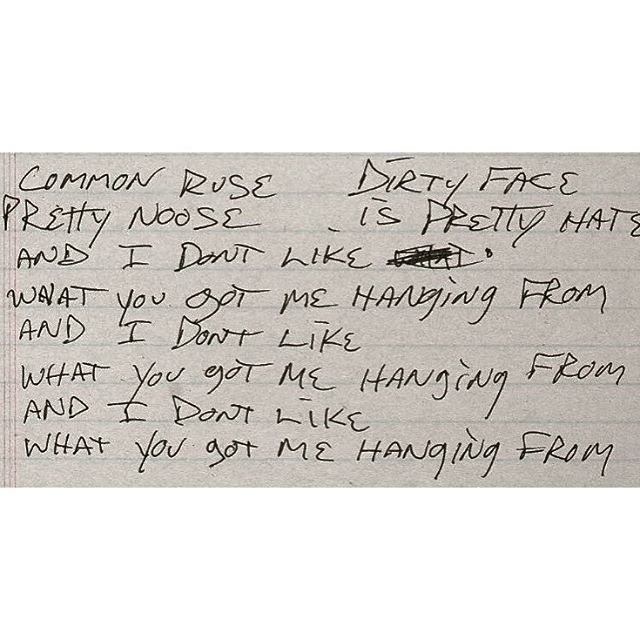 COMMON RUSE DIRTY FACE
PRETTY NOOSE IS PRETTY HATE
AND I DONT LIKE
WHAT YOU GOT ME HANGING FROM
AND I DONT LIKE
WHAT YOU GOT ME HANGING FROM
AND I DONT LIKE
WHAT YOU GOT ME HANGING FROM